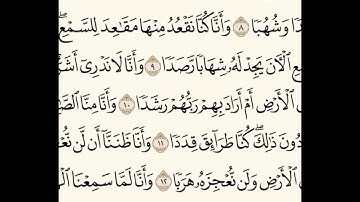 دًا وَشُهُبًا ٨ وَأَنَّا كُنَّا نَقْعُدُ مِنْهَا مَقَٰعِدَ لِلسَّمْعِ ۖ
عِ ٱلْـَٔانَ يَجِدْ لَهُۥ شِهَابًا رَّصَدًا ٩ وَأَنَّا لَا نَدْرِىٓ أَشَرٌّ
ٱلْأَرْضِ أَمْ أَرَادَ بِهِمْ رَبُّهُمْ رَشَدًا ١٠ وَأَنَّا مِنَّا ٱلصَّ
دُونَ ذَٰلِكَ ۖ كُنَّا طَرَآئِقَ قِدَدًا ١١ وَأَنَّا ظَنَنَّآ أَن لَّن نُّعْ
ٱلْأَرْضِ وَلَن نُّعْجِزَهُۥ هَرَبًا ١٢ وَأَنَّا لَمَّا سَمِعْنَا ٱلْ